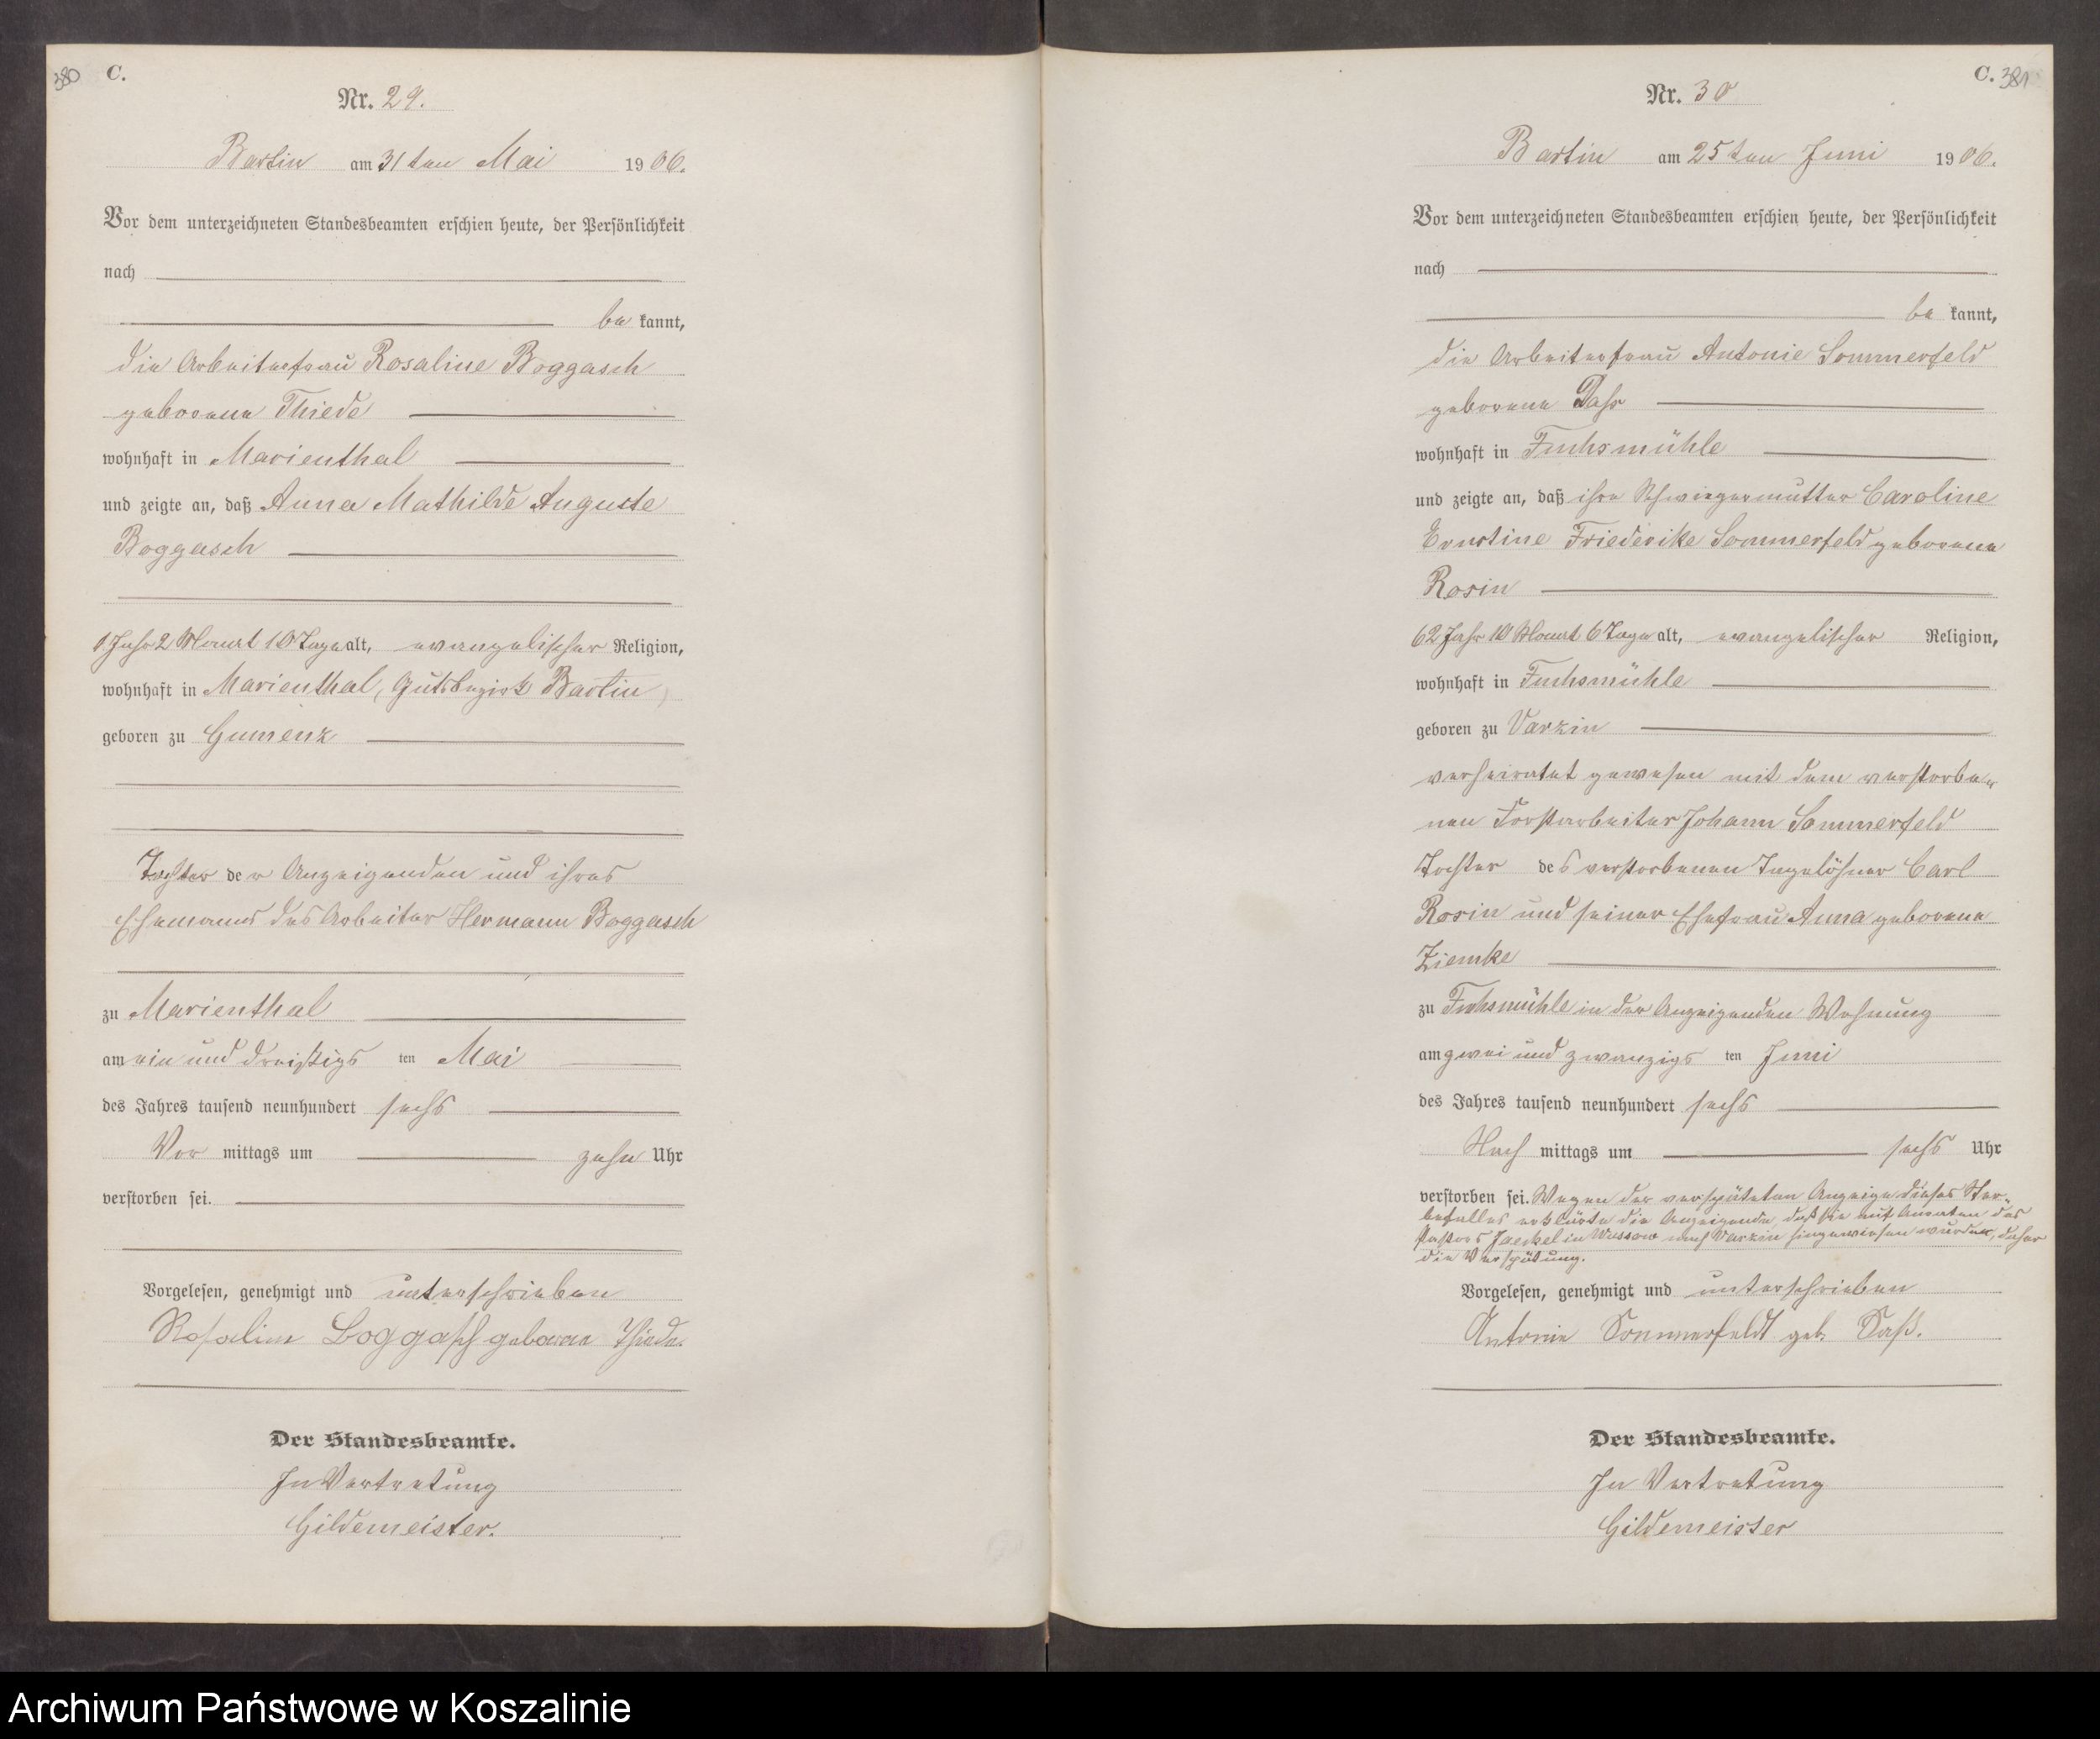 380 C.
Nr. 29.
Bartin am 31ten Mai 1906.
Vor dem unterzeichneten Standesbeamten erschien heute, der Persönlichkeit
nach
be kannt,
die Arbeiterfrau Rosaline Boggasch
geborene Thiede
wohnhaft in Marienthal
und zeigte an, daß Anna Mathilde Auguste
Boggasch
1 Jahr 2 Monat 10 Tage alt, evangelischer Religion,
wohnhaft in Marienthal, Gutsbezirk Bartin,
geboren zu Gumenz
Tochter der Anzeigenden und ihres
Ehemanns des Arbeiter Hermann Boggasch
zu Marienthal
am ein und dreißigs ten Mai
des Jahres tausend neunhundert sechs
Vor mittags um zehn Uhr
verstorben sei.
Vorgelesen, genehmigt und unterschrieben
Rosaline Boggasch geborene Thiede.
Der Standesbeamte.
In Vertretung
Gildemeister.
C. 381
Nr. 30
Bartin am 25ten Juni 1906.
Vor dem unterzeichneten Standesbeamten erschien heute, der Persönlichkeit
nach
be kannt,
die Arbeiterfrau Antonie Sommerfeld
geborene
wohnhaft in Fuchsmühle
und zeigte an, daß ihre Schwiegermutter Caroline
Ernstine Friederike Sommerfeld geborene
Rosin
62 Jahr 10 Monat 6 Tage alt, evangelischer Religion,
wohnhaft in Fuchsmühle
geboren zu Varzin
verheiratet gewesen mit dem verstorbe-
nen Forstarbeiter Johann Sommerfeld
Tochter des verstorbenen Tagelöhner Carl
Rosin und seiner Ehefrau Anna geborene
Ziemke
zu Fuchsmühle in der Anzeigenden Wohnung
am zwei und zwanzigs ten Juni
des Jahres tausend neunhundert sechs
Nach mittags um sechs Uhr
verstorben sei. Wegen der verspäteten Anzeige dieses Ster-
befalles erklärte die Anzeigende, daß sie auf Anraten des
Pastors Jaeckel in Wussow nach Varzin hingewiesen wurde, daher
die Verspätung.
Vorgelesen, genehmigt und unterschrieben
Antonie Sommerfeldt geb.
Der Standesbeamte.
In Vertretung
Gildemeister
Archiwum Państwowe w Koszalinie